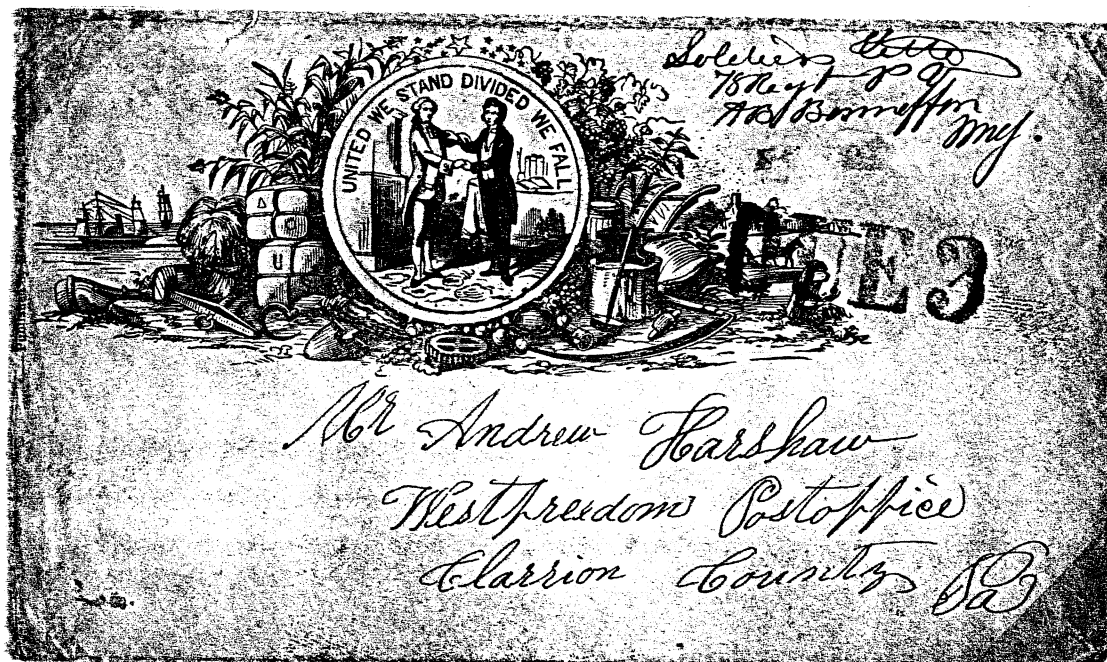 Soldiers Letter
78 Regt P V
A B Bonnaffon
Maj.
UNITED WE STAND DIVIDED WE FALL
U
DUE 3
Mr Andrew Harshaw
Westfreedom Postoffice
Clarrion County Pa